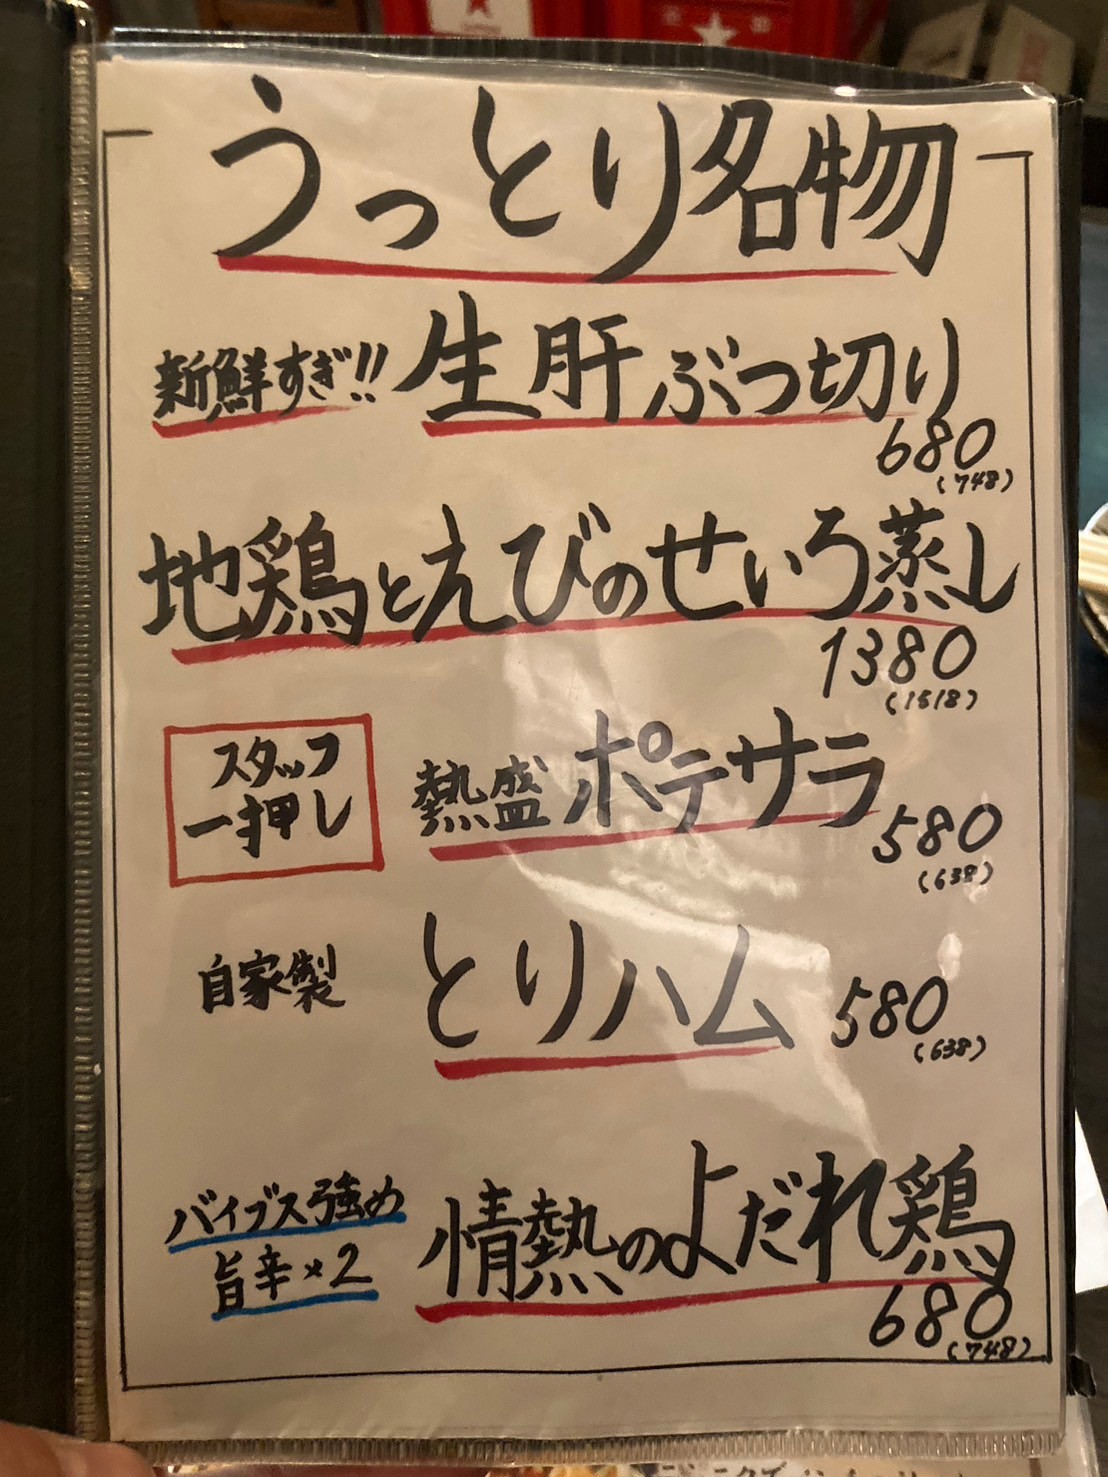 うっとり名物
新鮮すぎ!! 生肝ぶつ切り
680
(748)
地鶏とえびのせいろ蒸し
1380
(1518)
スタッフ
一押し
熱盛ポテサラ
580
(638)
自家製 とりハム 580
(638)
バイブス強め
旨辛×2
情熱のよだれ鶏
680
(748)